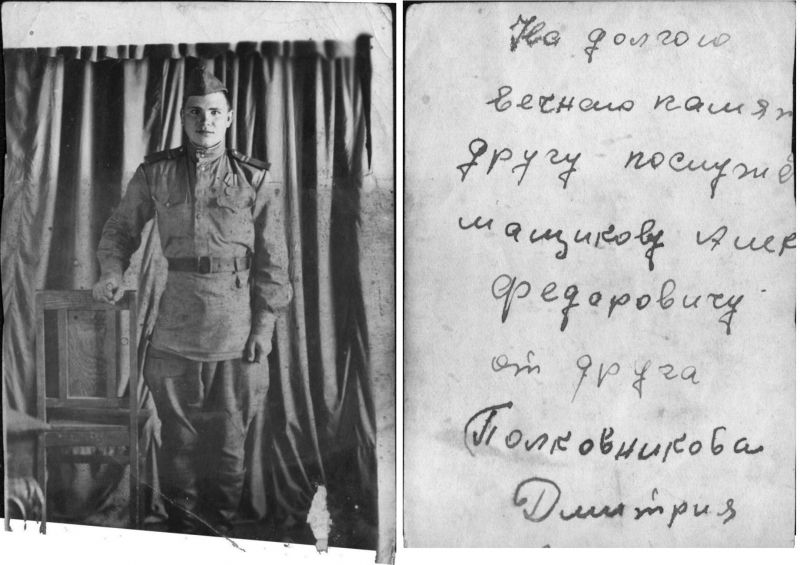 На долгою
вечнаю памят
другу послуже
мащикову Алек
Федаровичу
от друга
Полковникова
Дмитрия